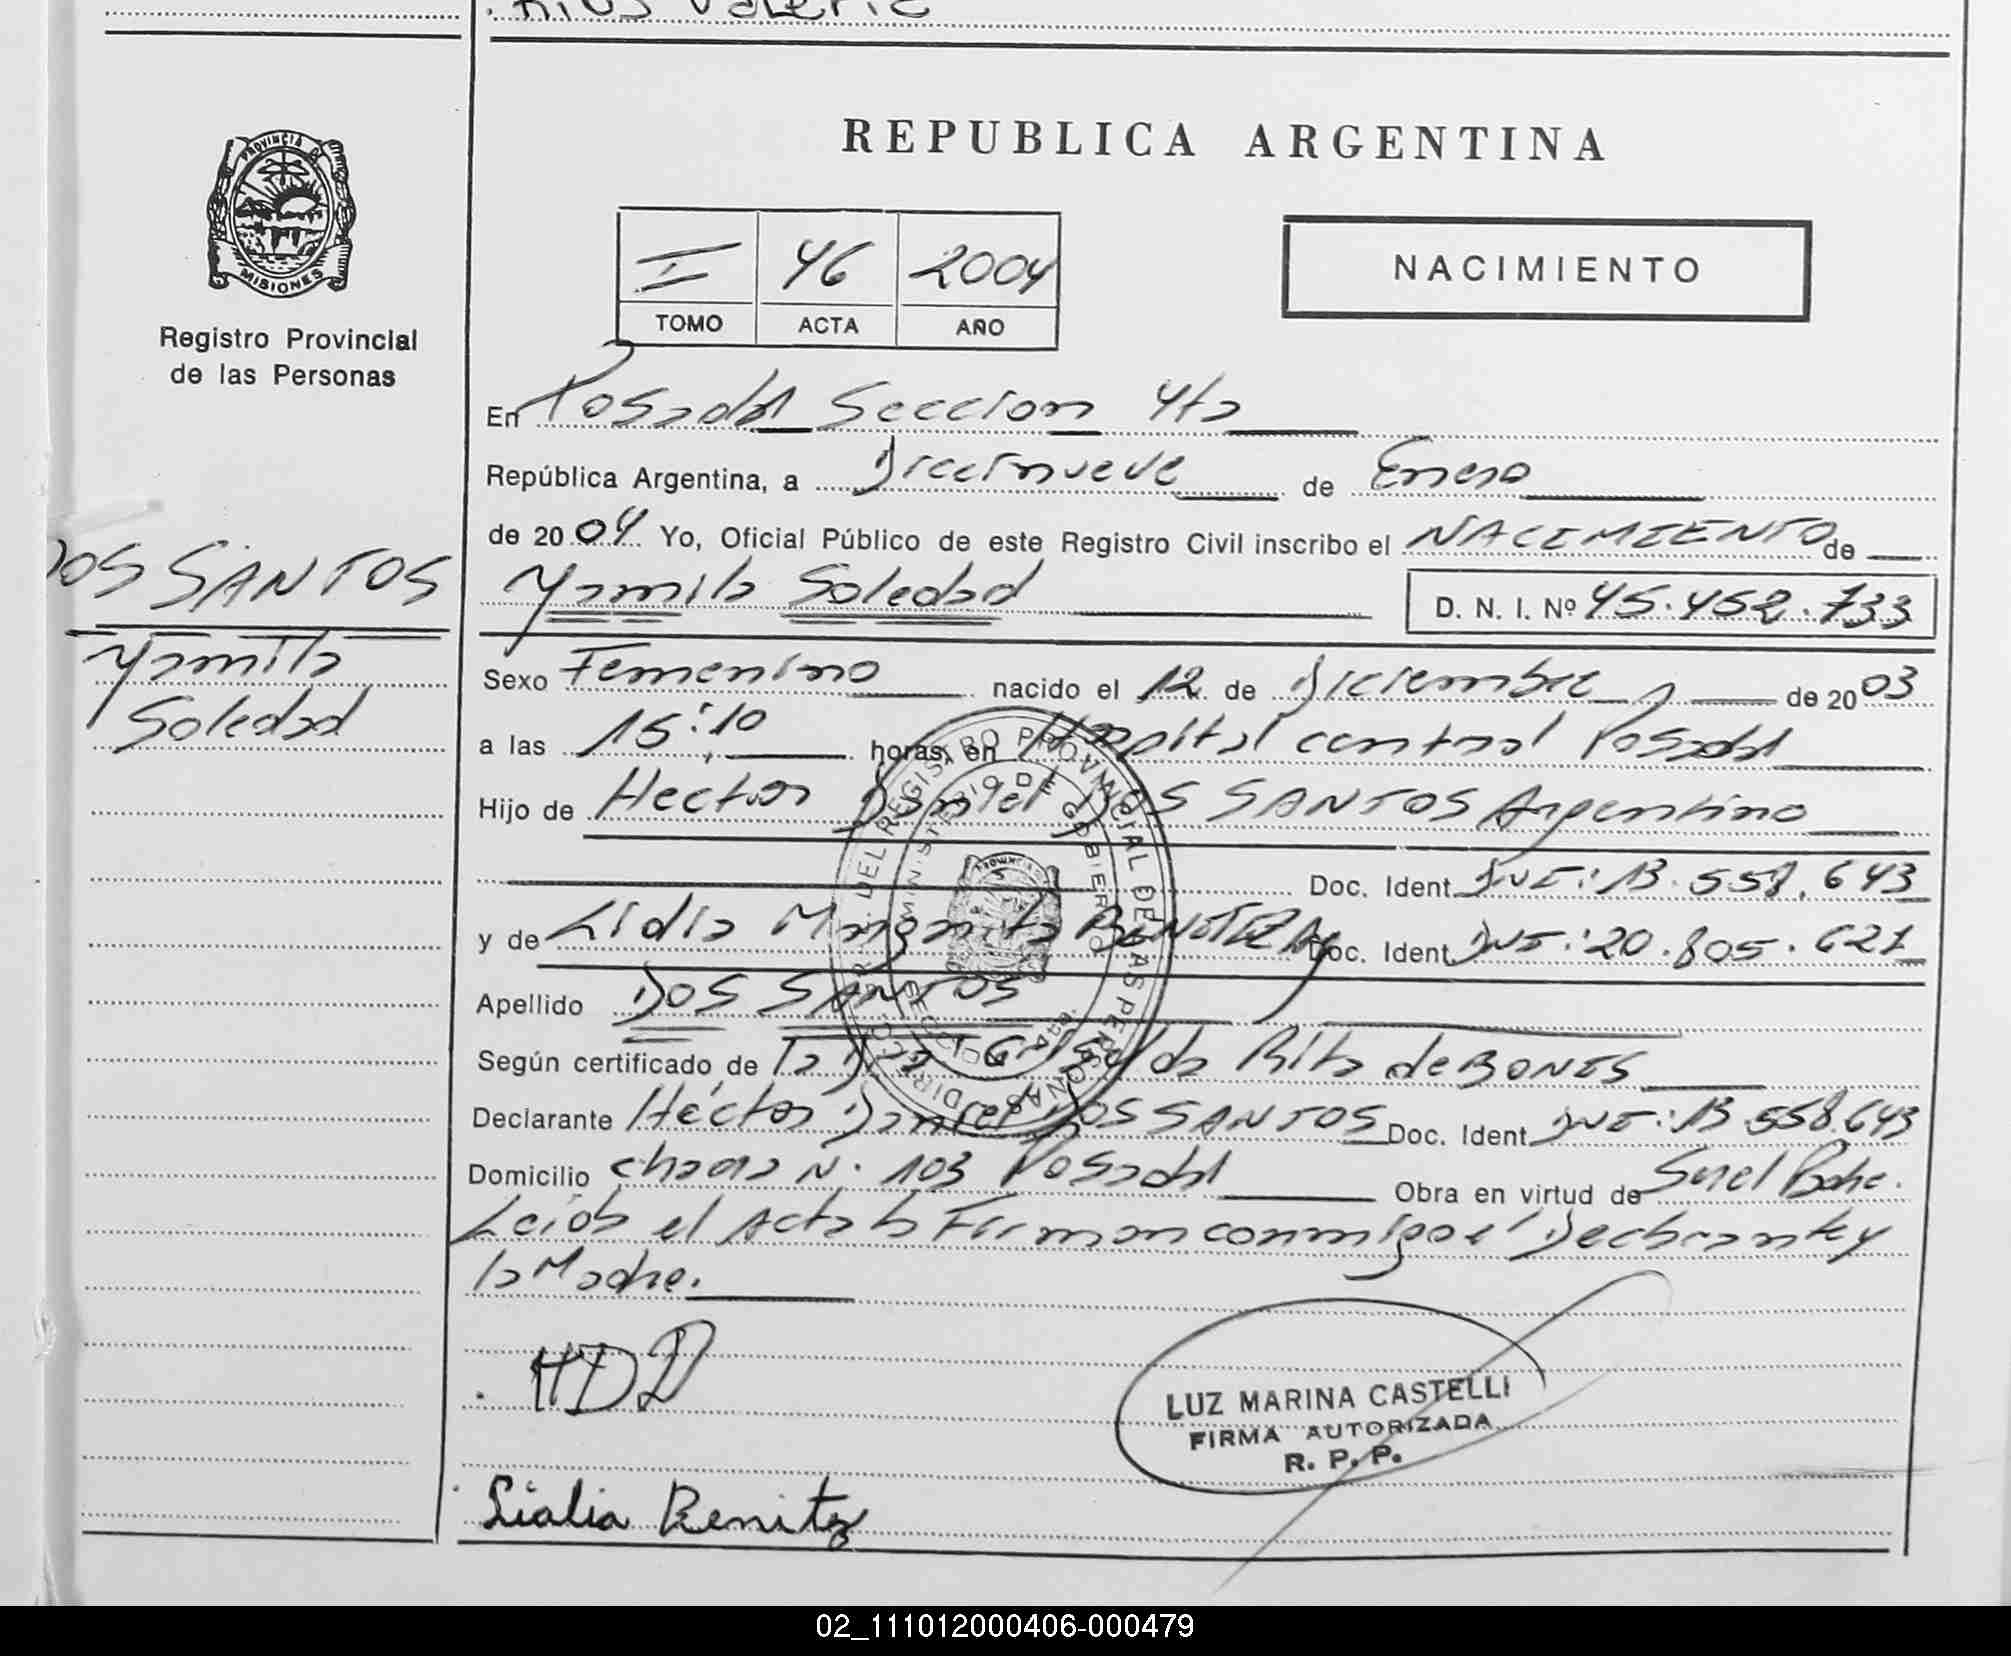 Rios Valeria
PROVINCIA DE
MISIONES
Registro Provincial
de las Personas
DOS SANTOS
Yamila
Soledad
REPUBLICA ARGENTINA
II 46 2004
TOMO ACTA AÑO
NACIMIENTO
En Posadas Seccion 4ta
República Argentina, a Diecinueve de Enero
de 2004 Yo, Oficial Público de este Registro Civil inscribo el NACIMIENTO de
Yamila Soledad D. N. I. Nº 45.452.733
Sexo Femenino nacido el 12 de Diciembre de 2003
a las 15:10 horas, en Hospital central Posadas
Hijo de Hector Daniel DOS SANTOS Argentino
Doc. Ident. DNI: 13.558.643
y de Lidia Margarita BENITEZ Doc. Ident. DNI: 20.805.621
Apellido DOS SANTOS
Según certificado de la Dra Griselda Rita de BONES
Declarante Héctor Daniel DOS SANTOS Doc. Ident. DNI: 13.558.643
Domicilio chacra N. 103 Posadas Obra en virtud de Ser el Padre.
Leída el Acta la Firman conmigo el Declarante y
la Madre.
HDD
LUZ MARINA CASTELLI
FIRMA AUTORIZADA
R. P. P.
Lidia Benitez
DIRECC. GRAL. DEL REGISTRO PROVINCIAL DE LAS PERSONAS
MINISTERIO DE GOBIERNO
SECCION 4ta.
02_111012000406-000479